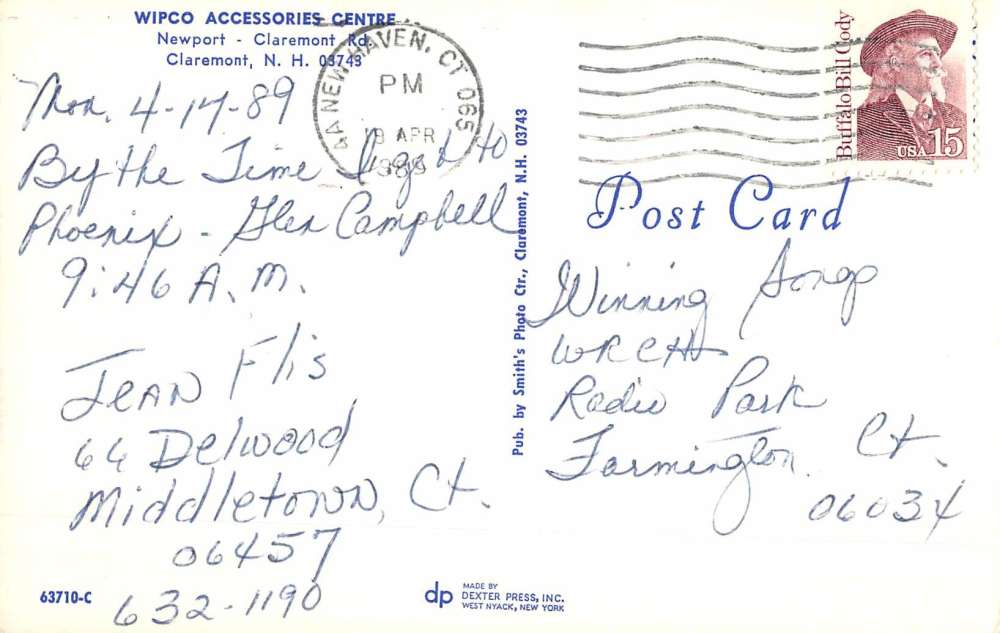 WIPCO ACCESSORIES CENTRE
Newport - Claremont Rd.
Claremont, N. H. 03743
Mon. 4-17-89
By the Time I get to
Phoenix - Glen Campbell
9:46 A.M.
Jean Flis
66 Delwood
Middletown, Ct.
06457
632-1190
63710-C
NEW HAVEN, CT 065
PM
18 APR
1989
Pub. by Smith's Photo Ctr., Claremont, N.H. 03743
dp
MADE BY
DEXTER PRESS, INC.
WEST NYACK, NEW YORK
Buffalo Bill Cody
USA 15
Post Card
Winning Songs
WRCH
Radio Park
Farmington Ct.
06034